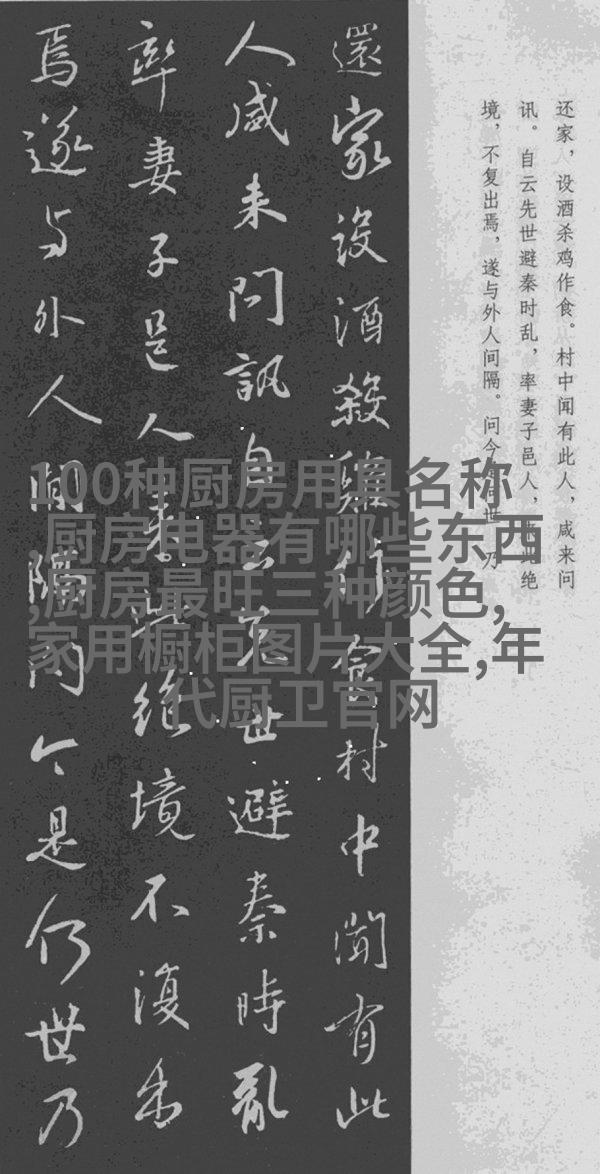 还家，设酒杀鸡作食。村中闻有此人，咸来问
讯。自云先世避秦时乱，率妻子邑人，来此绝
境，不复出焉，遂与外人间隔。问今是何世，乃
還家設酒殺雞作食村中聞有此
人咸来問訊自云先世避秦時亂
率妻子邑人来此絶境不復出
焉遂与外人間隔問今是何世乃
100种厨房用具名称
,厨房电器有哪些东西
,厨房最旺三种颜色,
家用橱柜图片大全,年
代厨卫官网